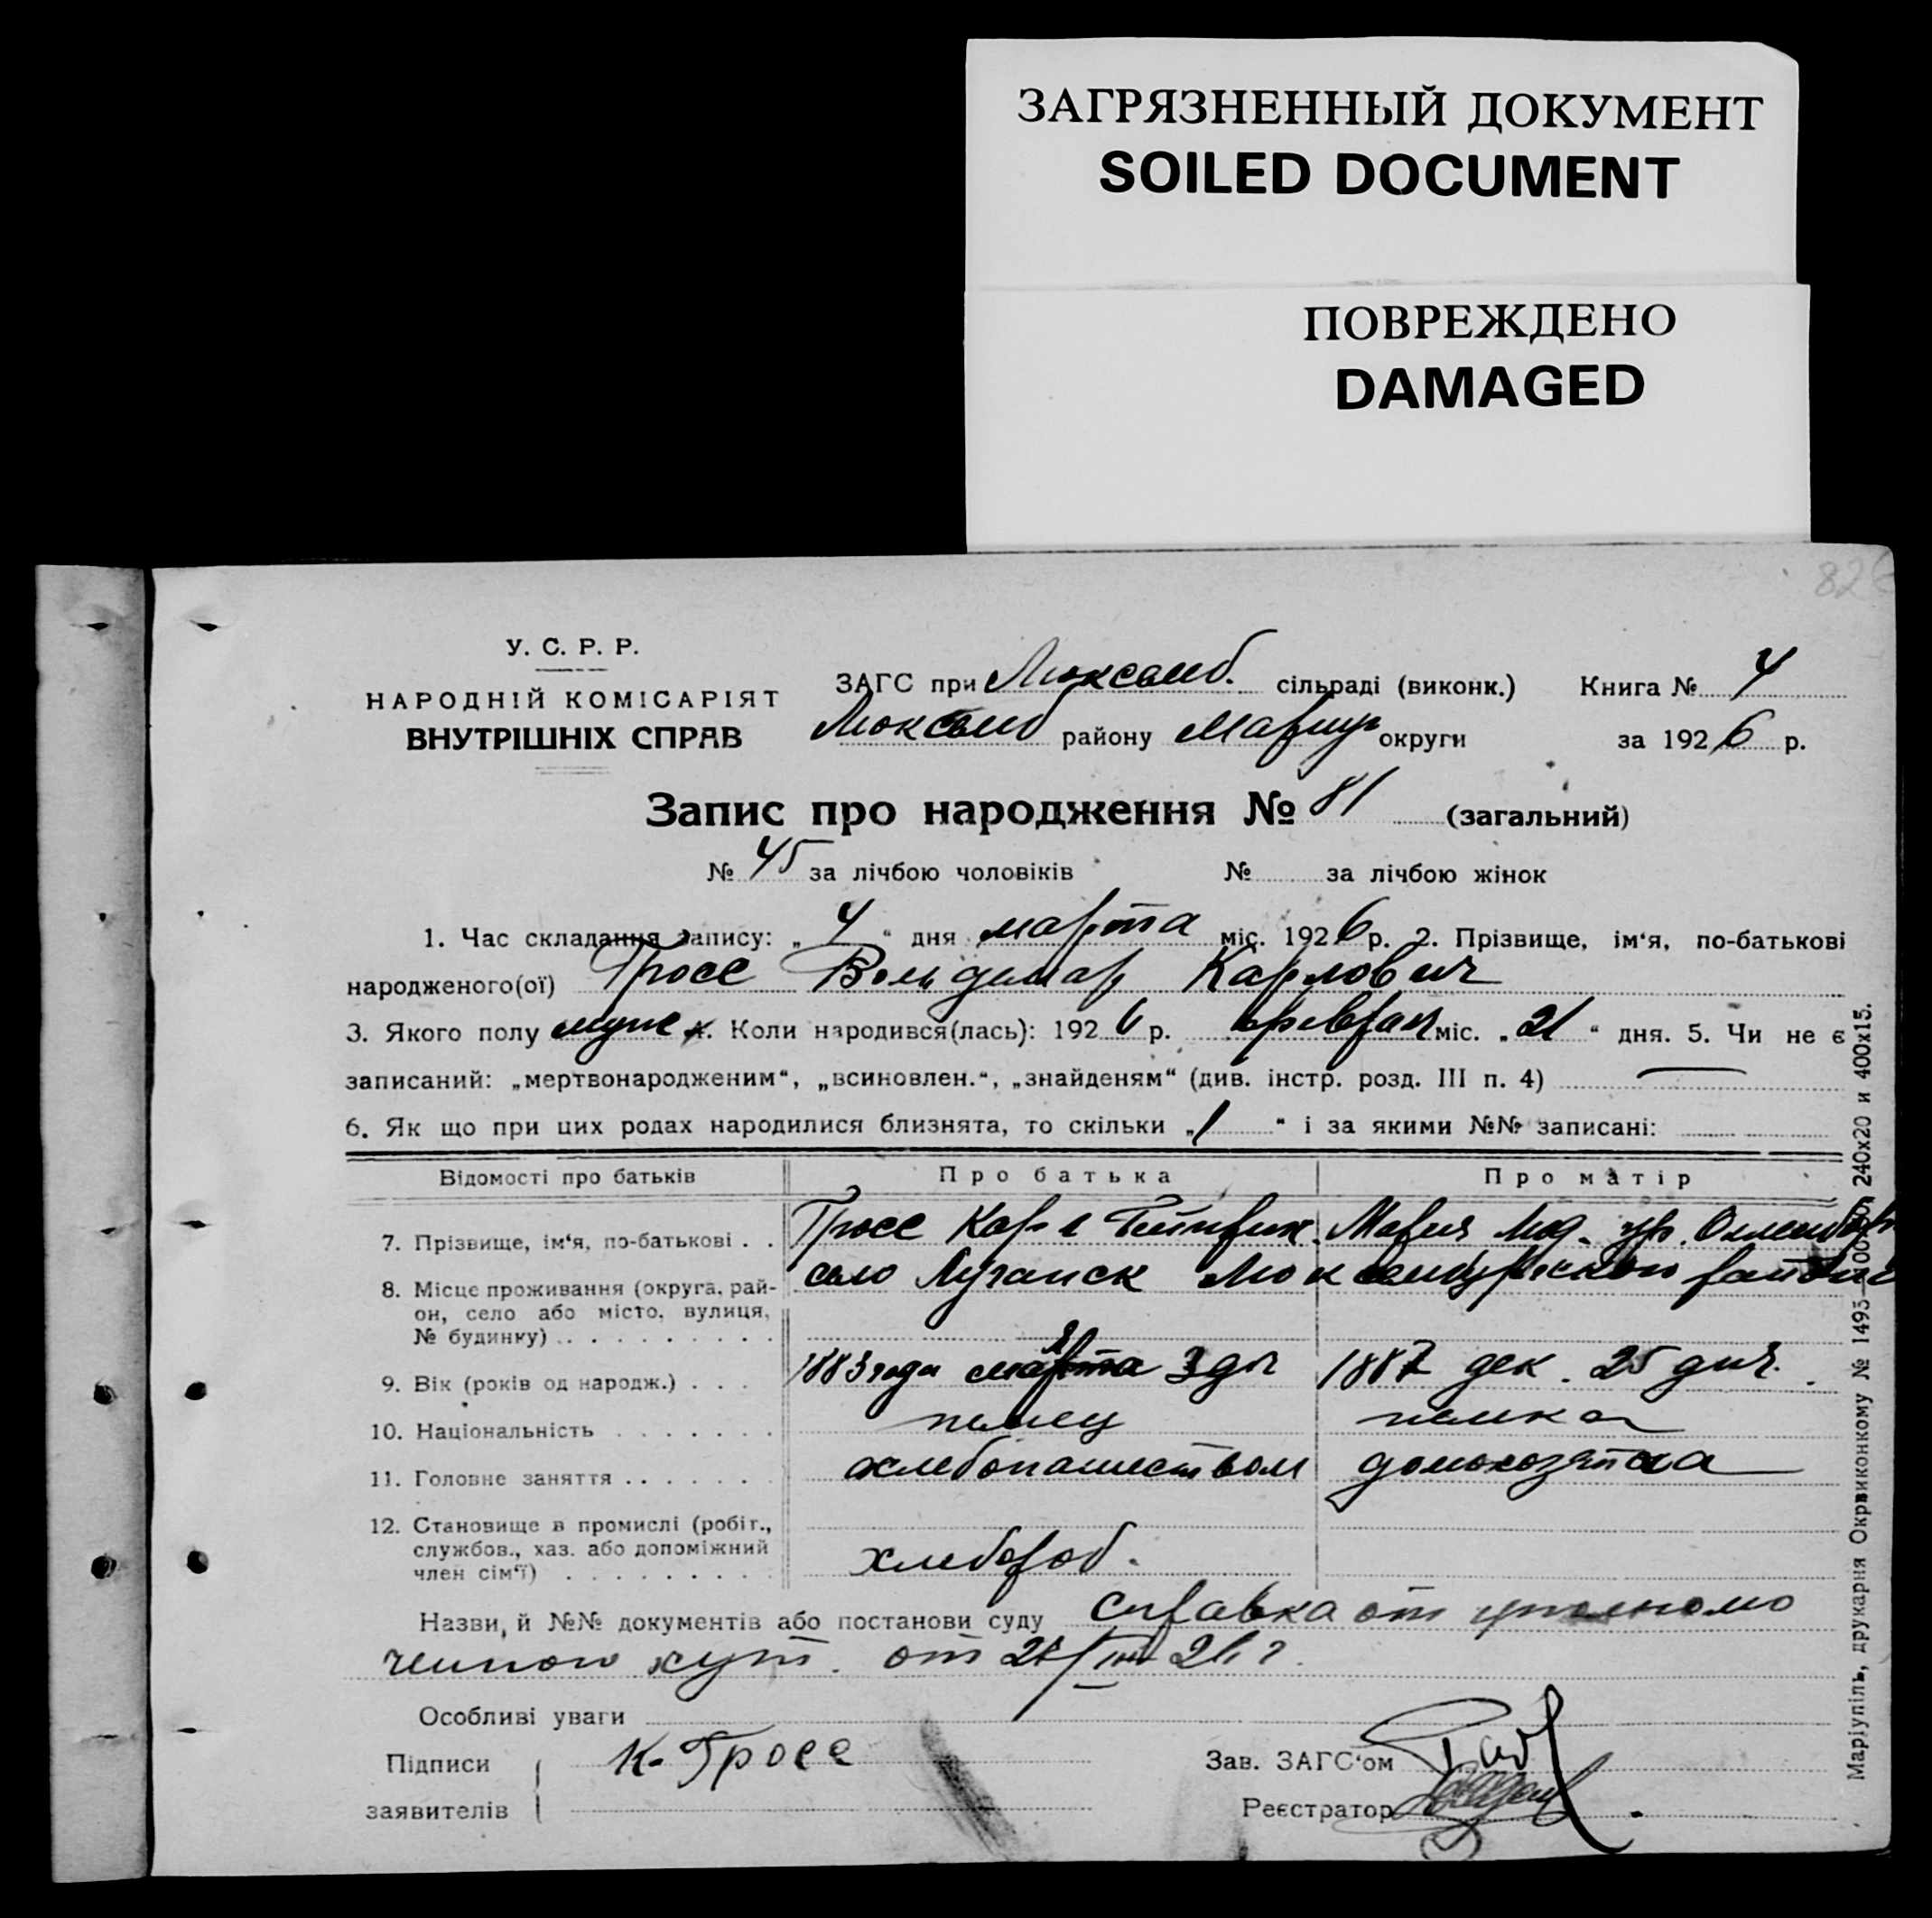 ЗАГРЯЗНЕННЫЙ ДОКУМЕНТ
SOILED DOCUMENT
ПОВРЕЖДЕНО
DAMAGED
82
У. С. Р. Р.
НАРОДНІЙ КОМІСАРІЯТ
ВНУТРІШНІХ СПРАВ
ЗАГС при Люксемб. сільраді (виконк.) Книга № 4
Люксемб району Мариуп округи за 1926 р.
Запис про народження № 81 (загальний)
№ 45 за лічбою чоловіків № за лічбою жінок
1. Час складання запису: „ 4 “ дня марта міс. 1926 р. 2. Прізвище, ім‘я, по-батькові
народженого(ої) Гросс Вольдемар Карлович
3. Якого полу муж 4. Коли народився(лась): 1926 р. феврал міс. „ 21 “ дня. 5. Чи не є
записаний: „мертвонародженим“, „всиновлен.“, „знайденям“ (див. інстр. розд. III п. 4)
6. Як що при цих родах народилися близнята, то скільки „1 “ і за якими №№ записані:
Відомості про батьків Про батька Про матір
7. Прізвище, ім‘я, по-батькові . . Гросс Карл Гейнрих. Мария ур.
8. Місце проживання (округа, рай-он, село або місто, вулиця, № будинку) . . село Луганск Люксембургского района
9. Вік (років од народж.) . . . 1883 года марта 3 дн 1887 дек. 25 дня.
10. Національність . . . . . . . немец немка
11. Головне заняття . . . . . . хлебопашеством домохозяйка
12. Становище в промислі (робіт., службов., хаз. або допоміжний член сім‘ї) . . . . . . . . . хлебороб.
Назви й №№ документів або постанови суду Справка от уполномо
ченного хут. от
Особливі уваги
Підписи К. Гросс Зав. ЗАГС‘ом
заявителів Реєстратор
Маріупіль, друкарня Окрвиконкому № 1495 240х20 и 400х15.